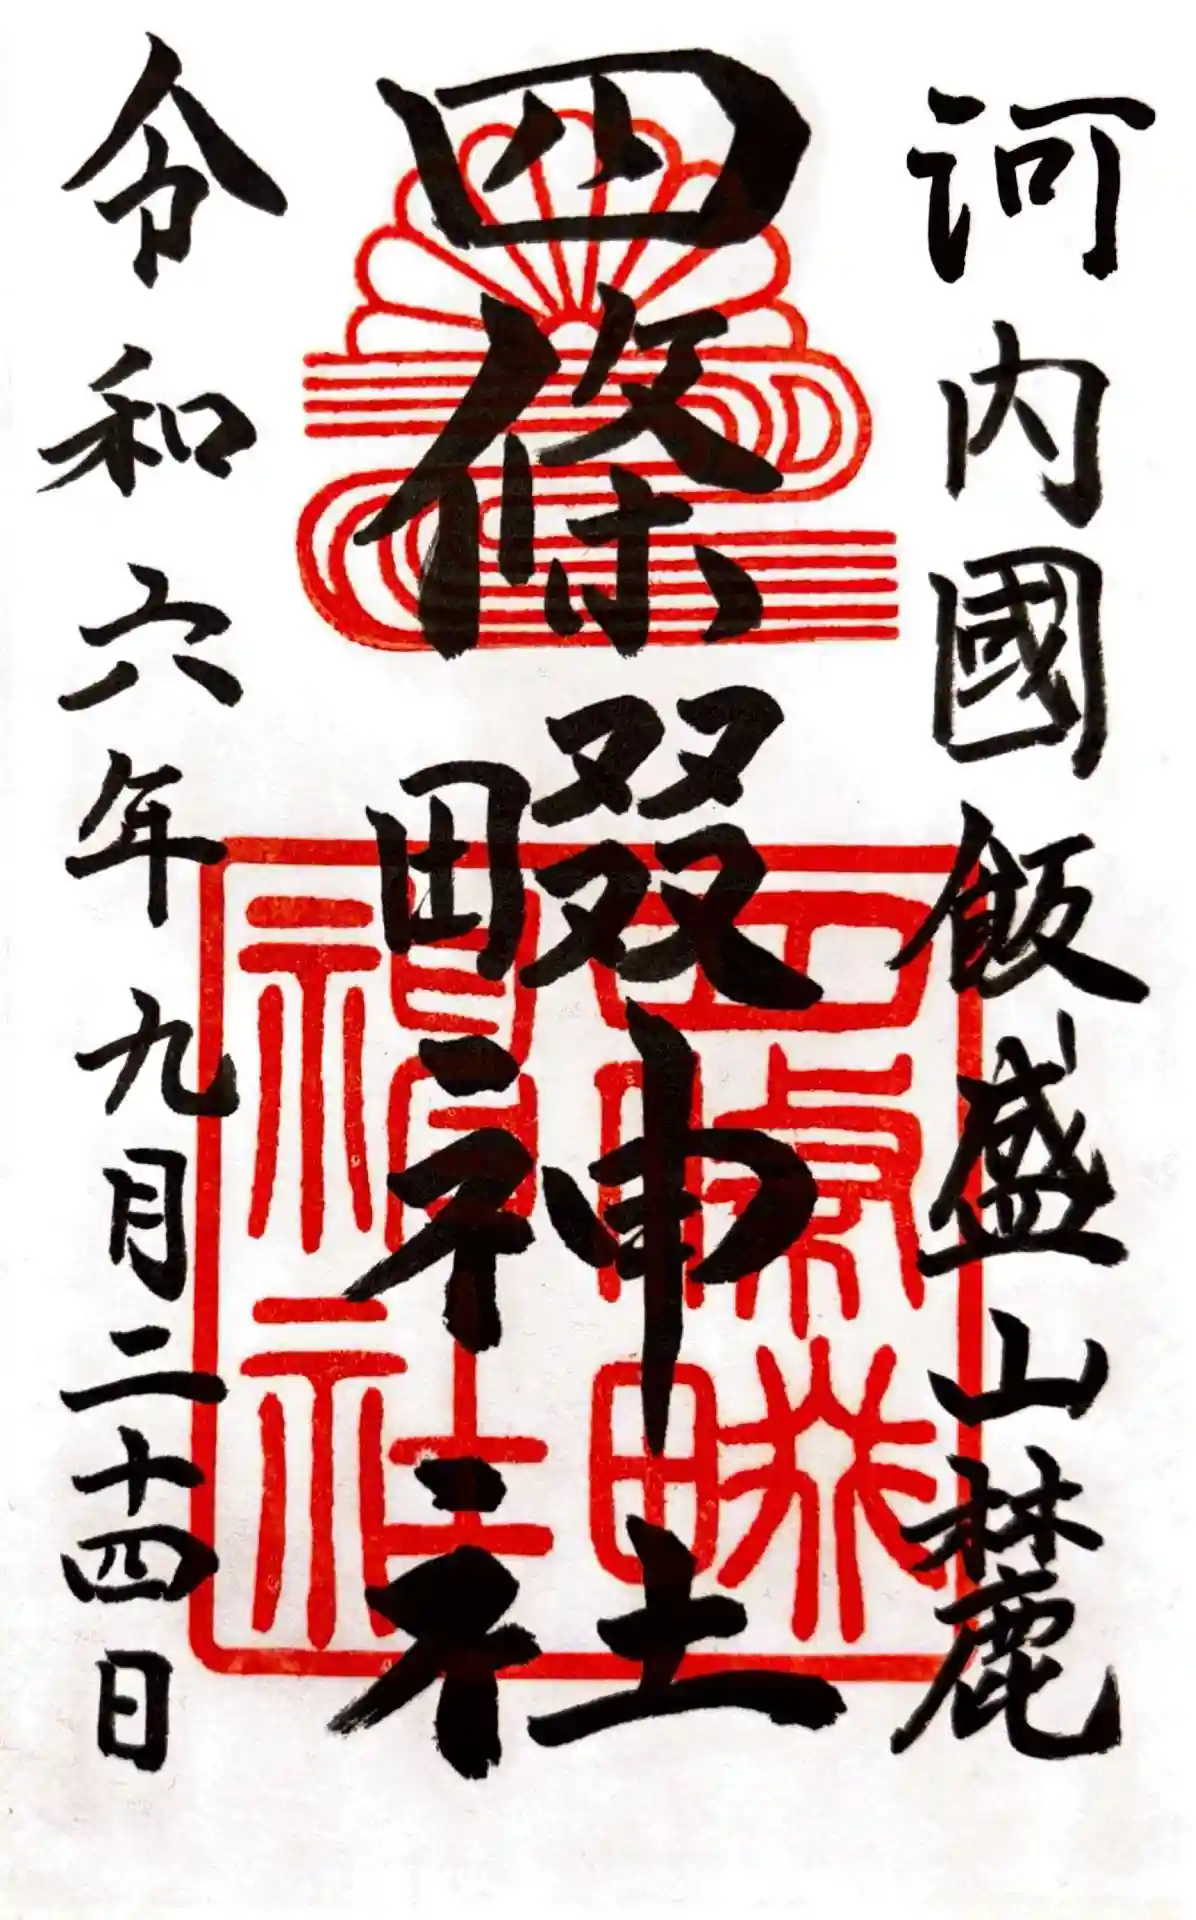 河内國飯盛山麓
四條畷神社
令和六年九月二十四日
四條畷
神社